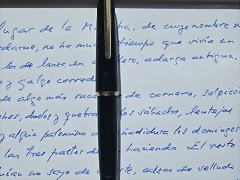 lugar de la de cuyo nombre
no ha tiempo que vivía un
los de lanza en adarga antigua,
y galgo
de algo más de carnero, salpicón
duelos y los sábados, lantejas
algún palomino añadidura los domingos
las tres partes de hacienda. El resto
un sayo de calzas de velludo